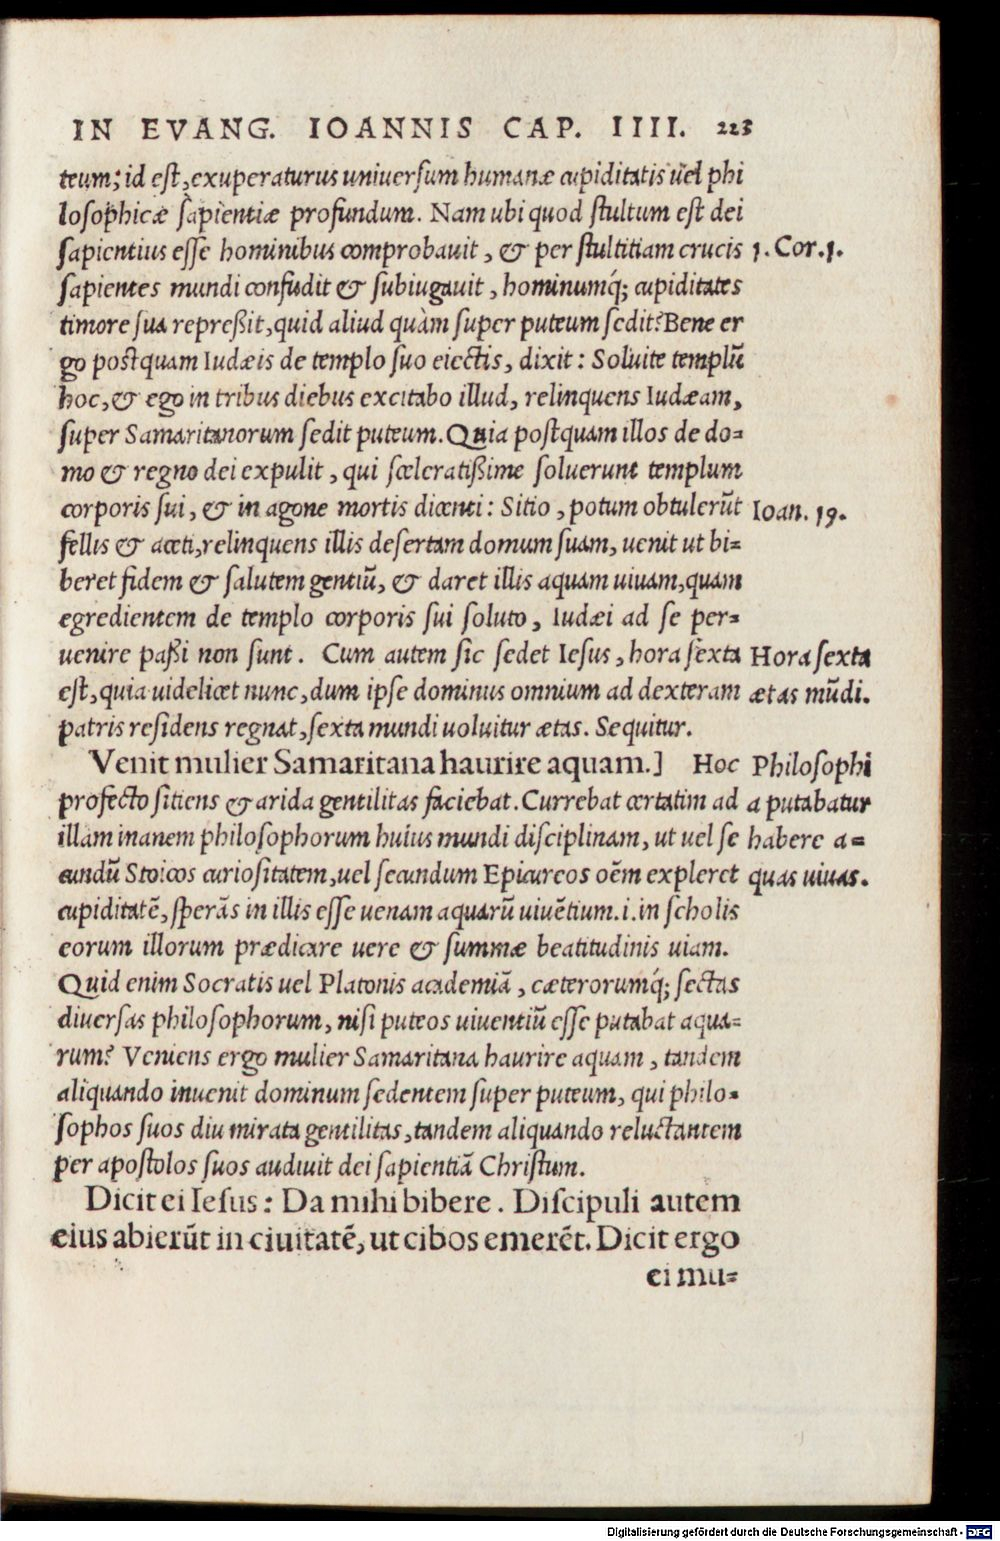 IN EVANG. IOANNIS CAP. IIII. 223
teum; id est, exuperaturus uniuersum humanæ cupiditatis uel phi
losophicæ sapientiæ profundum. Nam ubi quod stultum est dei
sapientius esse hominibus comprobauit, & per stultitiam crucis
1. Cor. 1.
sapientes mundi confudit & subiugauit, hominumq́; cupiditates
timore sua repreßit, quid aliud quàm super puteum sedit? Bene er
go postquam Iudæis de templo suo eiectis, dixit: Soluite templū
hoc, & ego in tribus diebus excitabo illud, relinquens Iudæam,
super Samaritanorum sedit puteum. Quia postquam illos de do=
mo & regno dei expulit, qui sceleratißime soluerunt templum
corporis sui, & in agone mortis dicenti: Sitio, potum obtulerūt
Ioan. 19.
fellis & aceti, relinquens illis desertam domum suam, uenit ut bi=
beret fidem & salutem gentiū, & daret illis aquam uiuam, quam
egredientem de templo corporis sui soluto, Iudæi ad se per=
uenire paßi non sunt. Cum autem sic sedet Iesus, hora sexta
Hora sexta
est, quia uidelicet nunc, dum ipse dominus omnium ad dexteram
ætas mūdi.
patris residens regnat, sexta mundi uoluitur ætas. Sequitur.
Venit mulier Samaritana haurire aquam.] Hoc
Philosophi
profecto sitiens & arida gentilitas faciebat. Currebat certatim ad
a putabatur
illam inanem philosophorum huius mundi disciplinam, ut uel se
habere a=
cundū Stoicos curiositatem, uel secundum Epicureos oēm expleret
quas uiuas.
cupiditatē, sperās in illis esse uenam aquarū uiuētium .i. in scholis
eorum illorum prædicare uere & summæ beatitudinis uiam.
Quid enim Socratis uel Platonis academiā, cæterorumq́; sectas
diuersas philosophorum, nisi puteos uiuentiū esse putabat aqua=
rum? Veniens ergo mulier Samaritana haurire aquam, tandem
aliquando inuenit dominum sedentem super puteum, qui philo=
sophos suos diu mirata gentilitas, tandem aliquando reluctantem
per apostolos suos audiuit dei sapientiā Christum.
Dicit ei Iesus: Da mihi bibere. Discipuli autem
eius abierūt in ciuitatē, ut cibos emerēt. Dicit ergo
ei mu=
Digitalisierung gefördert durch die Deutsche Forschungsgemeinschaft - DFG